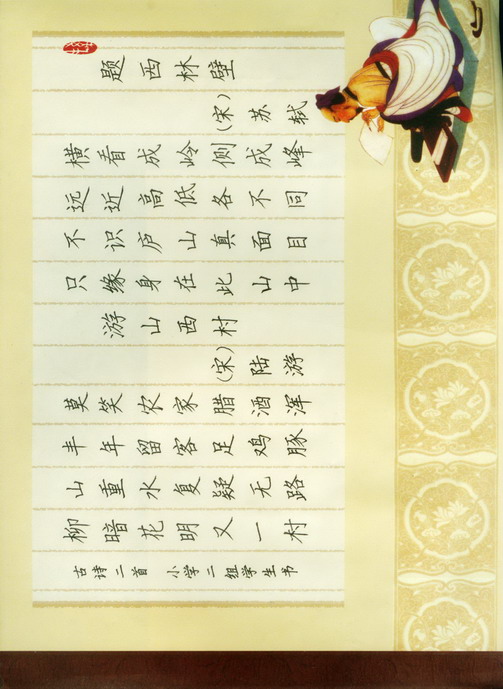 题西林壁
(宋)苏轼
横看成岭侧成峰
远近高低各不同
不识庐山真面目
只缘身在此山中
游山西村
(宋)陆游
莫笑农家腊酒浑
丰年留客足鸡豚
山重水复疑无路
柳暗花明又一村
古诗二首 小学二组学生书